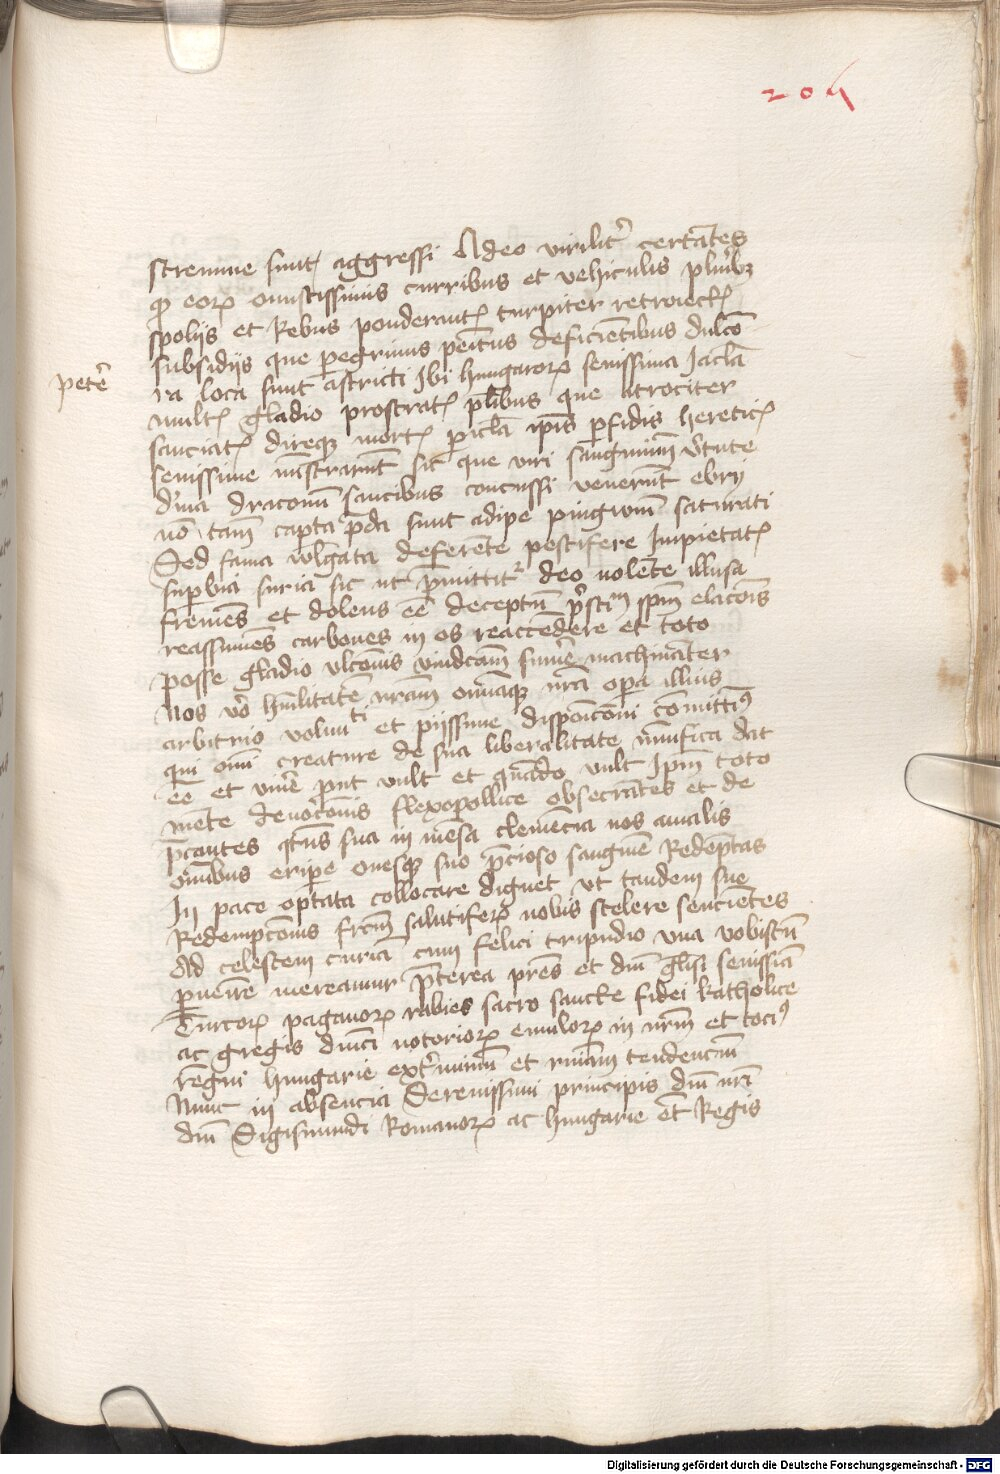 204
strenue sunt aggressi Adeo virilit̄ certātes
qꝫ eoꝝ onustissimis curribus et vehiculis pluribꝫ
spolijs et Rebus ponderant turpiter retroiect
subsidijs que pegrinis penitus deficiētibus dulco
petē
ra loca sunt astricti Ibi hungaroꝝ seuissima Jacla
mult gladio prostrat plibus que atrociter
sauciat direqꝫ mort picla ip̄is pfidis heretic
seuissime mīstrarūt sic que viri sanguinū v̄tute
diuīa draconū faucibus concussi venerūt ebrij
nō tam̄ capta p̄da sunt adipe pinguiū saturati
Sed fama wlgata deferēte pestifere Impietat
supbia furia sic ut p̄mittitʳ deo nolēte illusa
fremēs et dolens eē deceptū sp̄m elacōis
reassumēs carbones in os reaccēdere et toto
posse gladio vlcōnis vindcam̄ sumē machinater
Nos vō hūilitatē nr̄am omnāqꝫ nr̄a opa illius
arbitrio volunti et pijssime disposiconi comittiꝰ
qui omī creature de sua liberalitate mūifica dat
eē et viuē put vult et quādo vult Ip̄m toto
mēte deuocōnis flexopollice obsecrātes et de
p̄cantes qtus sua in mēsa clemēcia nos a malis
omībus eripe ouesqꝫ suo p̄cioso sanguīe Redēptas
In pace optata collocare dignet vt tandem sue
Redempcōnis frc̄m salutiferꝝ nobis scelere sencietes
Ad celestem curiā cum felici tripudio vna vobiscū
puenire mereamur p̄terea pr̄es et dn̄i gl̄isi seuissiā
Turcoꝝ paganoꝝ rabies sacro sancte fidei katholice
ac gregis dnīci notorioꝝ emuloꝝ in nr̄m et tociꝰ
regni hungarie ext̄miniū et ruinā tendenciū
Nunc in absencia Serenissimi principis dn̄i nr̄i
dn̄i Sigismundi Romanoꝝ ac hungarie etc̄ Regis
Digitalisierung gefördert durch die Deutsche Forschungsgemeinschaft - DFG